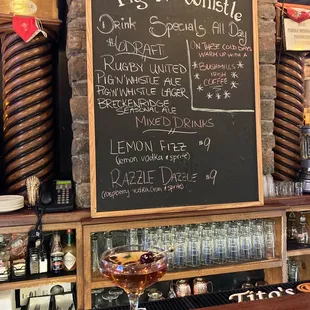 Pig n' Whistle
Drink Specials All Day
$6 DRAFT
RUGBY UNITED
PIG'N'WHISTLE ALE
PIG'N'WHISTLE LAGER
BRECKENRIDGE
SEASONAL ALE
ON THESE COLD DAYS
WARM UP WITH A
BUSHMILLS
IRISH
COFFEE
MIXED DRINKS
LEMON FIZZ $9
(lemon vodka & sprite)
RAZZLE DAZZLE $9
(raspberry vodka, cran & sprite)
Whistle
Tito's